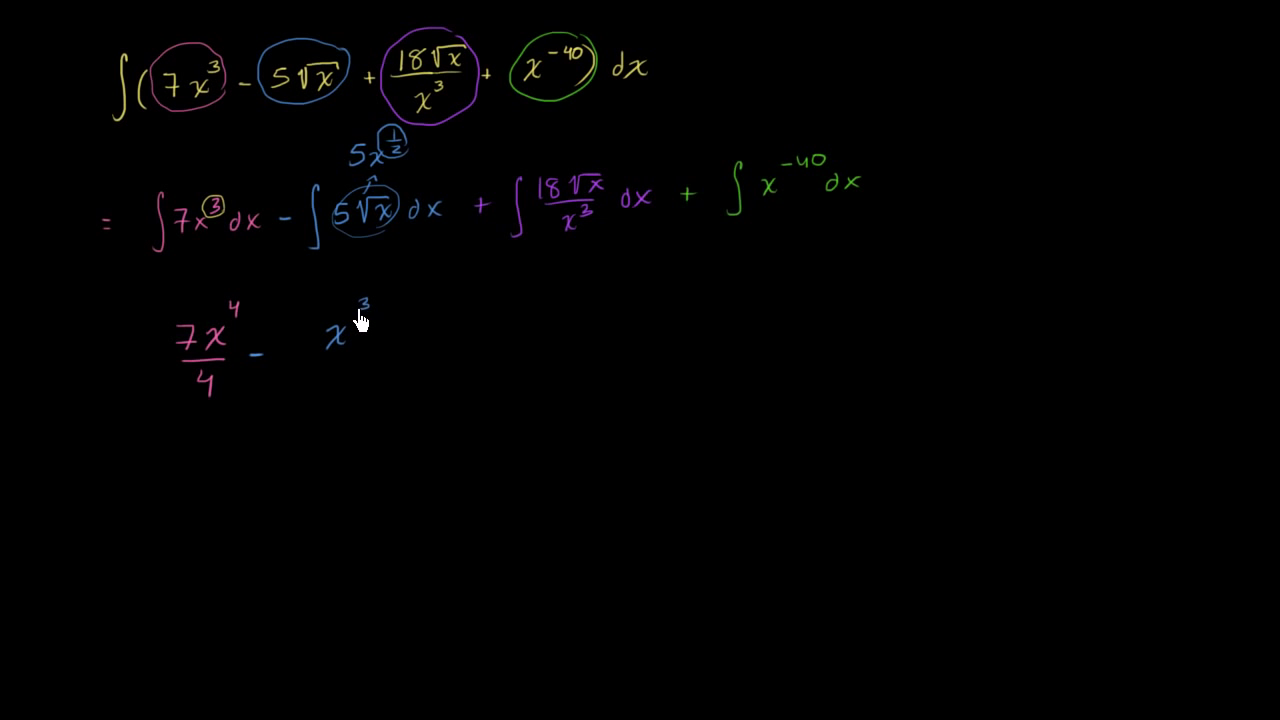 ∫(7x³ - 5√x + 18√x/x³ + x⁻⁴⁰) dx
5x^(1/2)
= ∫7x³dx - ∫5√x dx + ∫18√x/x³ dx + ∫x⁻⁴⁰dx
7x⁴/4 - x³